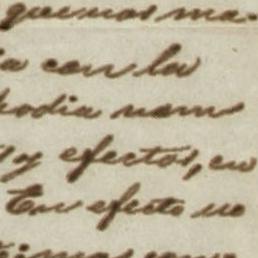 quenos ma-
a con la
podia nom
s y efectos, en
En efecto no